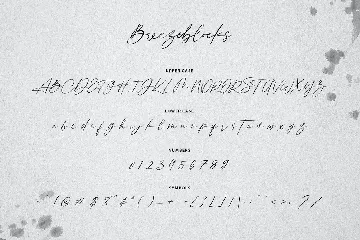 Breezeblocks
UPPERCASE
ABCDEFGHIJKLMNOPQRSTUVWXYZ
LOWERCASE
abcdefghijklmnopqrstuvwxyz
NUMBERS
0123456789
SYMBOLS